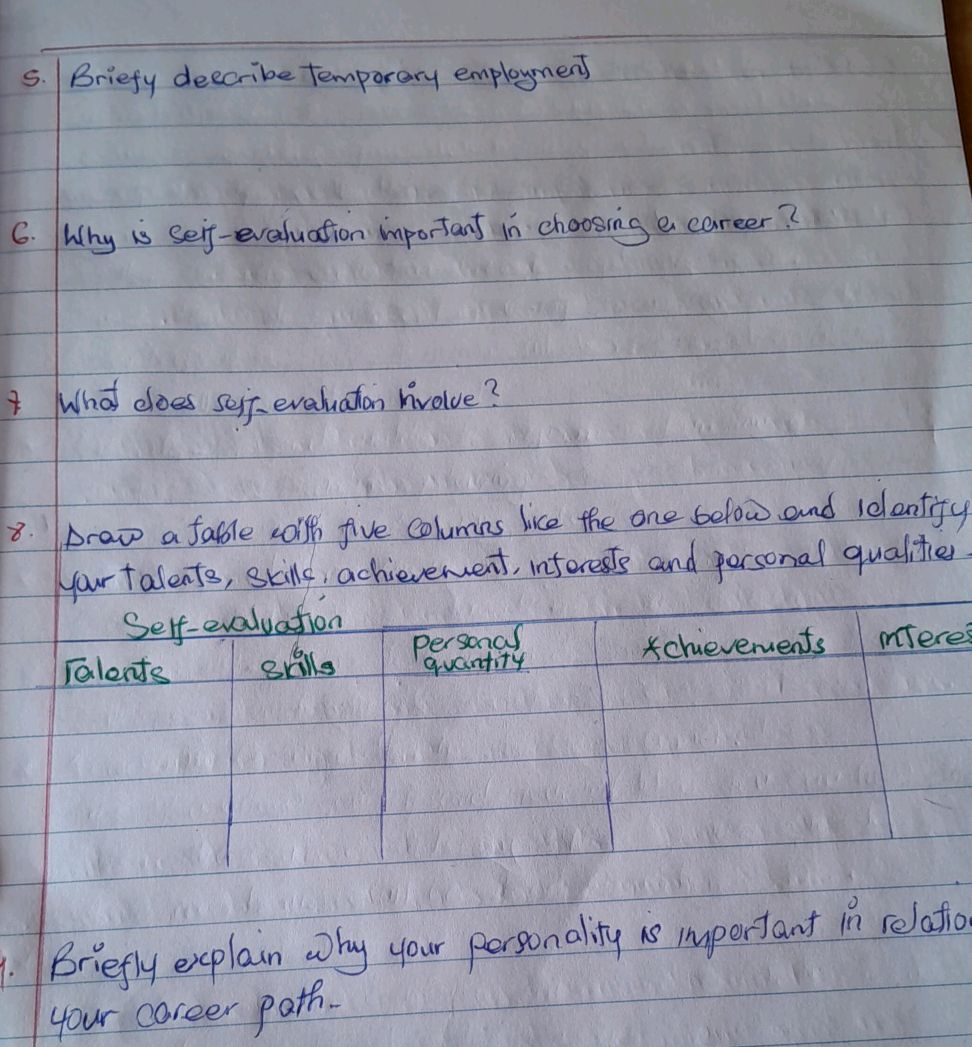 5. Briefy describe Temporary employment
6. Why is self-evaluation important in choosing a career?
7 What does self-evaluation involve?
8. Draw a table with five columns like the one below and identify
your talents, skills, achievement, interests and personal qualities
Self-evaluation
Talents skills personal quantity Achievements
Briefly explain why your personality is important in relatio
your career path.